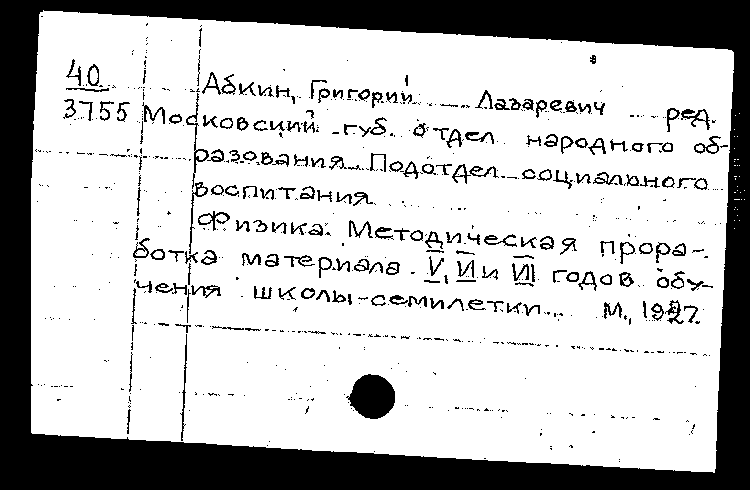 40 Абкин, Григорий Лазаревич ред.
3755 Московский губ. отдел народного об-
разования. Подотдел социального
воспитания
Физика. Методическая прора-
ботка материала. V, VI и VII годов обу-
чения школы-семилетки... М., 1927.